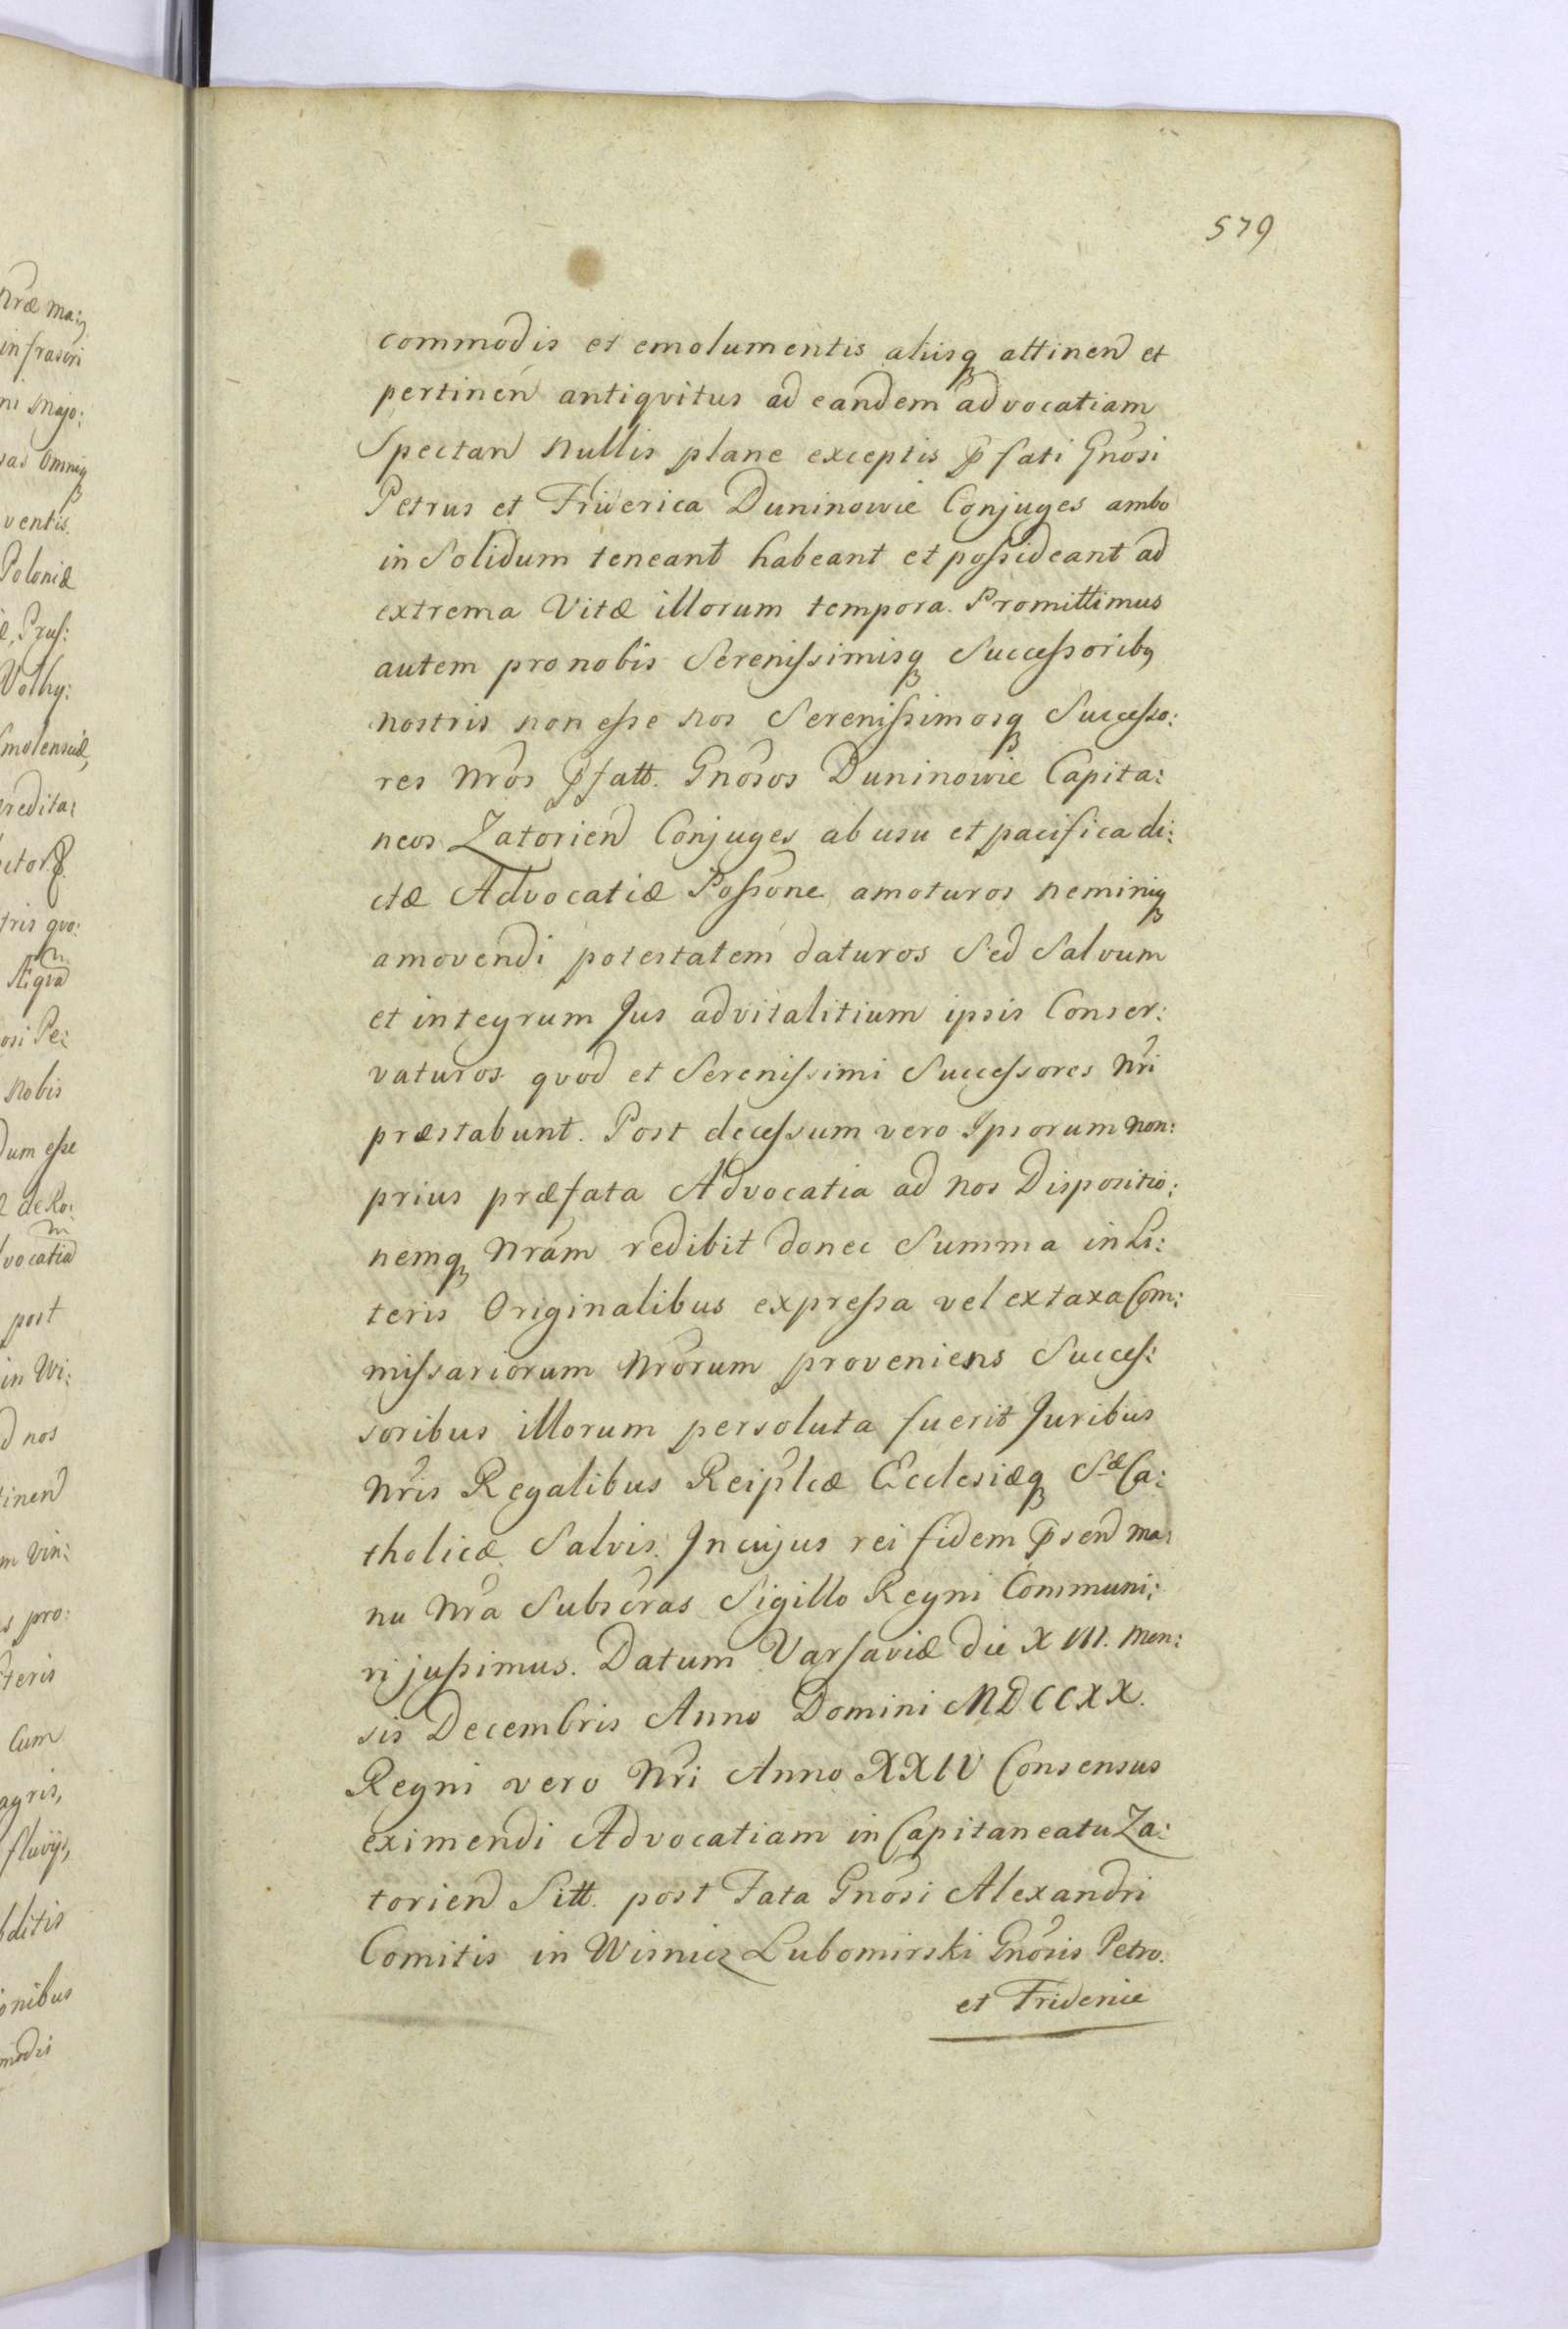 579
commodis et emolumentis aliisq attinen et
pertinen antiqvitus ad eandem advocatiam
Spectan Nullis plane exceptis pfati Gnosi
Petrus et Friderica Duninowie Conjuges ambo
in Solidum teneant habeant et possideant ad
extrema Vitæ illorum tempora. Promittimus
autem pro nobis Serenissimisq Successoribq
nostris non esse nos Serenissimosq Successo:
res Nros pfatt. Gnosos Duninowie Capita:
neos Zatorien Conjuges ab usu et pacifica di:
ctæ Advocatiæ Possone amoturos neminiq
amovendi potestatem daturos Sed Salvum
et integrum Jus advitalitium ipsis Conser:
vaturos qvod et Serenissimi Successores Nri
præstabunt. Post decessum vero Ipsorum non:
prius præfata Advocatia ad nos Dispositio:
nemq Nram redibit donec Summa in Li:
teris Originalibus expressa vel ex taxa Com:
missariorum Nrorum proveniens Succes:
soribus illorum persoluta fuerit Juribus
Nris Regalibus Reiplcæ Ecclesiæq Sæ Ca:
tholicæ Salvis. In cujus rei fidem psen ma:
nu Nra Subscras Sigillo Regni Communi:
ri jussimus. Datum Varsaviæ die XVII. Men:
sis Decembris Anno Domini MDCCXX.
Regni vero Nri Anno XXIV Consensus
eximendi Advocatiam in Capitaneatu Za:
torien Sitt. post Fata Gnosi Alexandri
Comitis in Wisnicz Lubomirski Gnosis Petro.
et Fridericæ